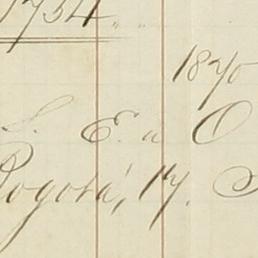 1754 " "
1870
S. E. a O
Bogotá, 17.